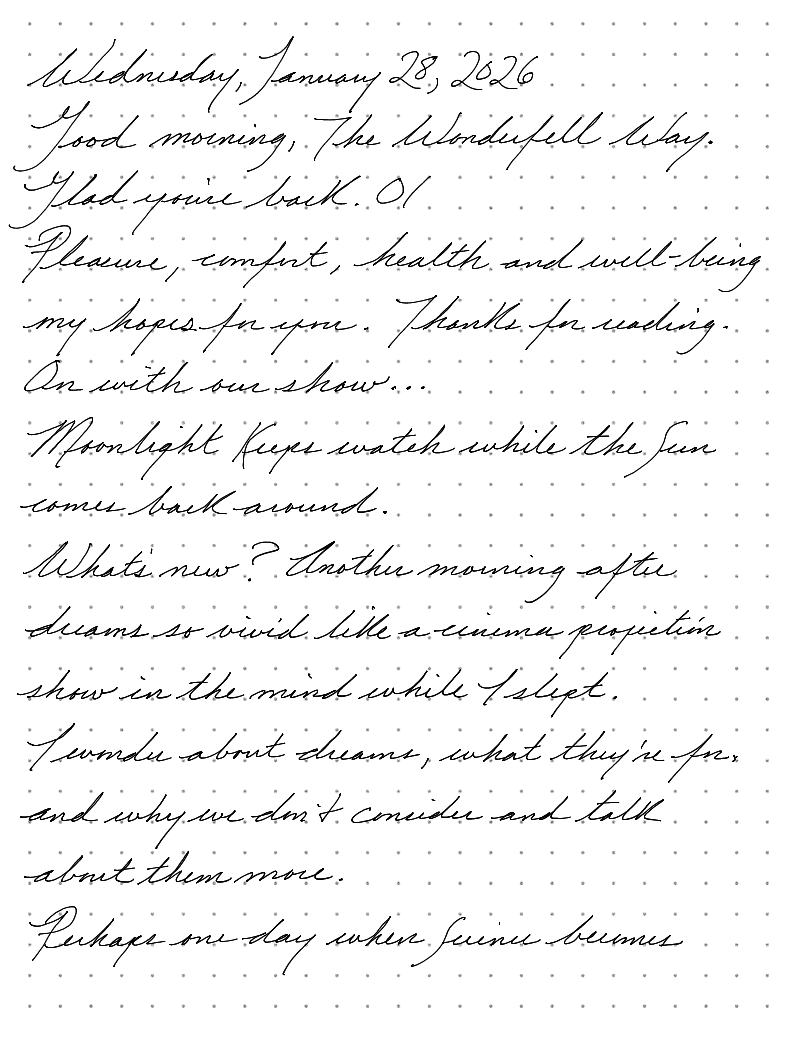 Wednesday, January 28, 2026
Good morning, The Wonderfell Way.
Glad you're back. 01
Pleasure, comfort, health and well-being
my hopes for you. Thanks for reading.
On with our show...
Moonlight keeps watch while the sun
comes back around.
What's new? Another morning after
dreams so vivid like a cinema projection
show in the mind while I slept.
I wonder about dreams, what they're for,
and why we don't consider and talk
about them more.
Perhaps one day when science becomes